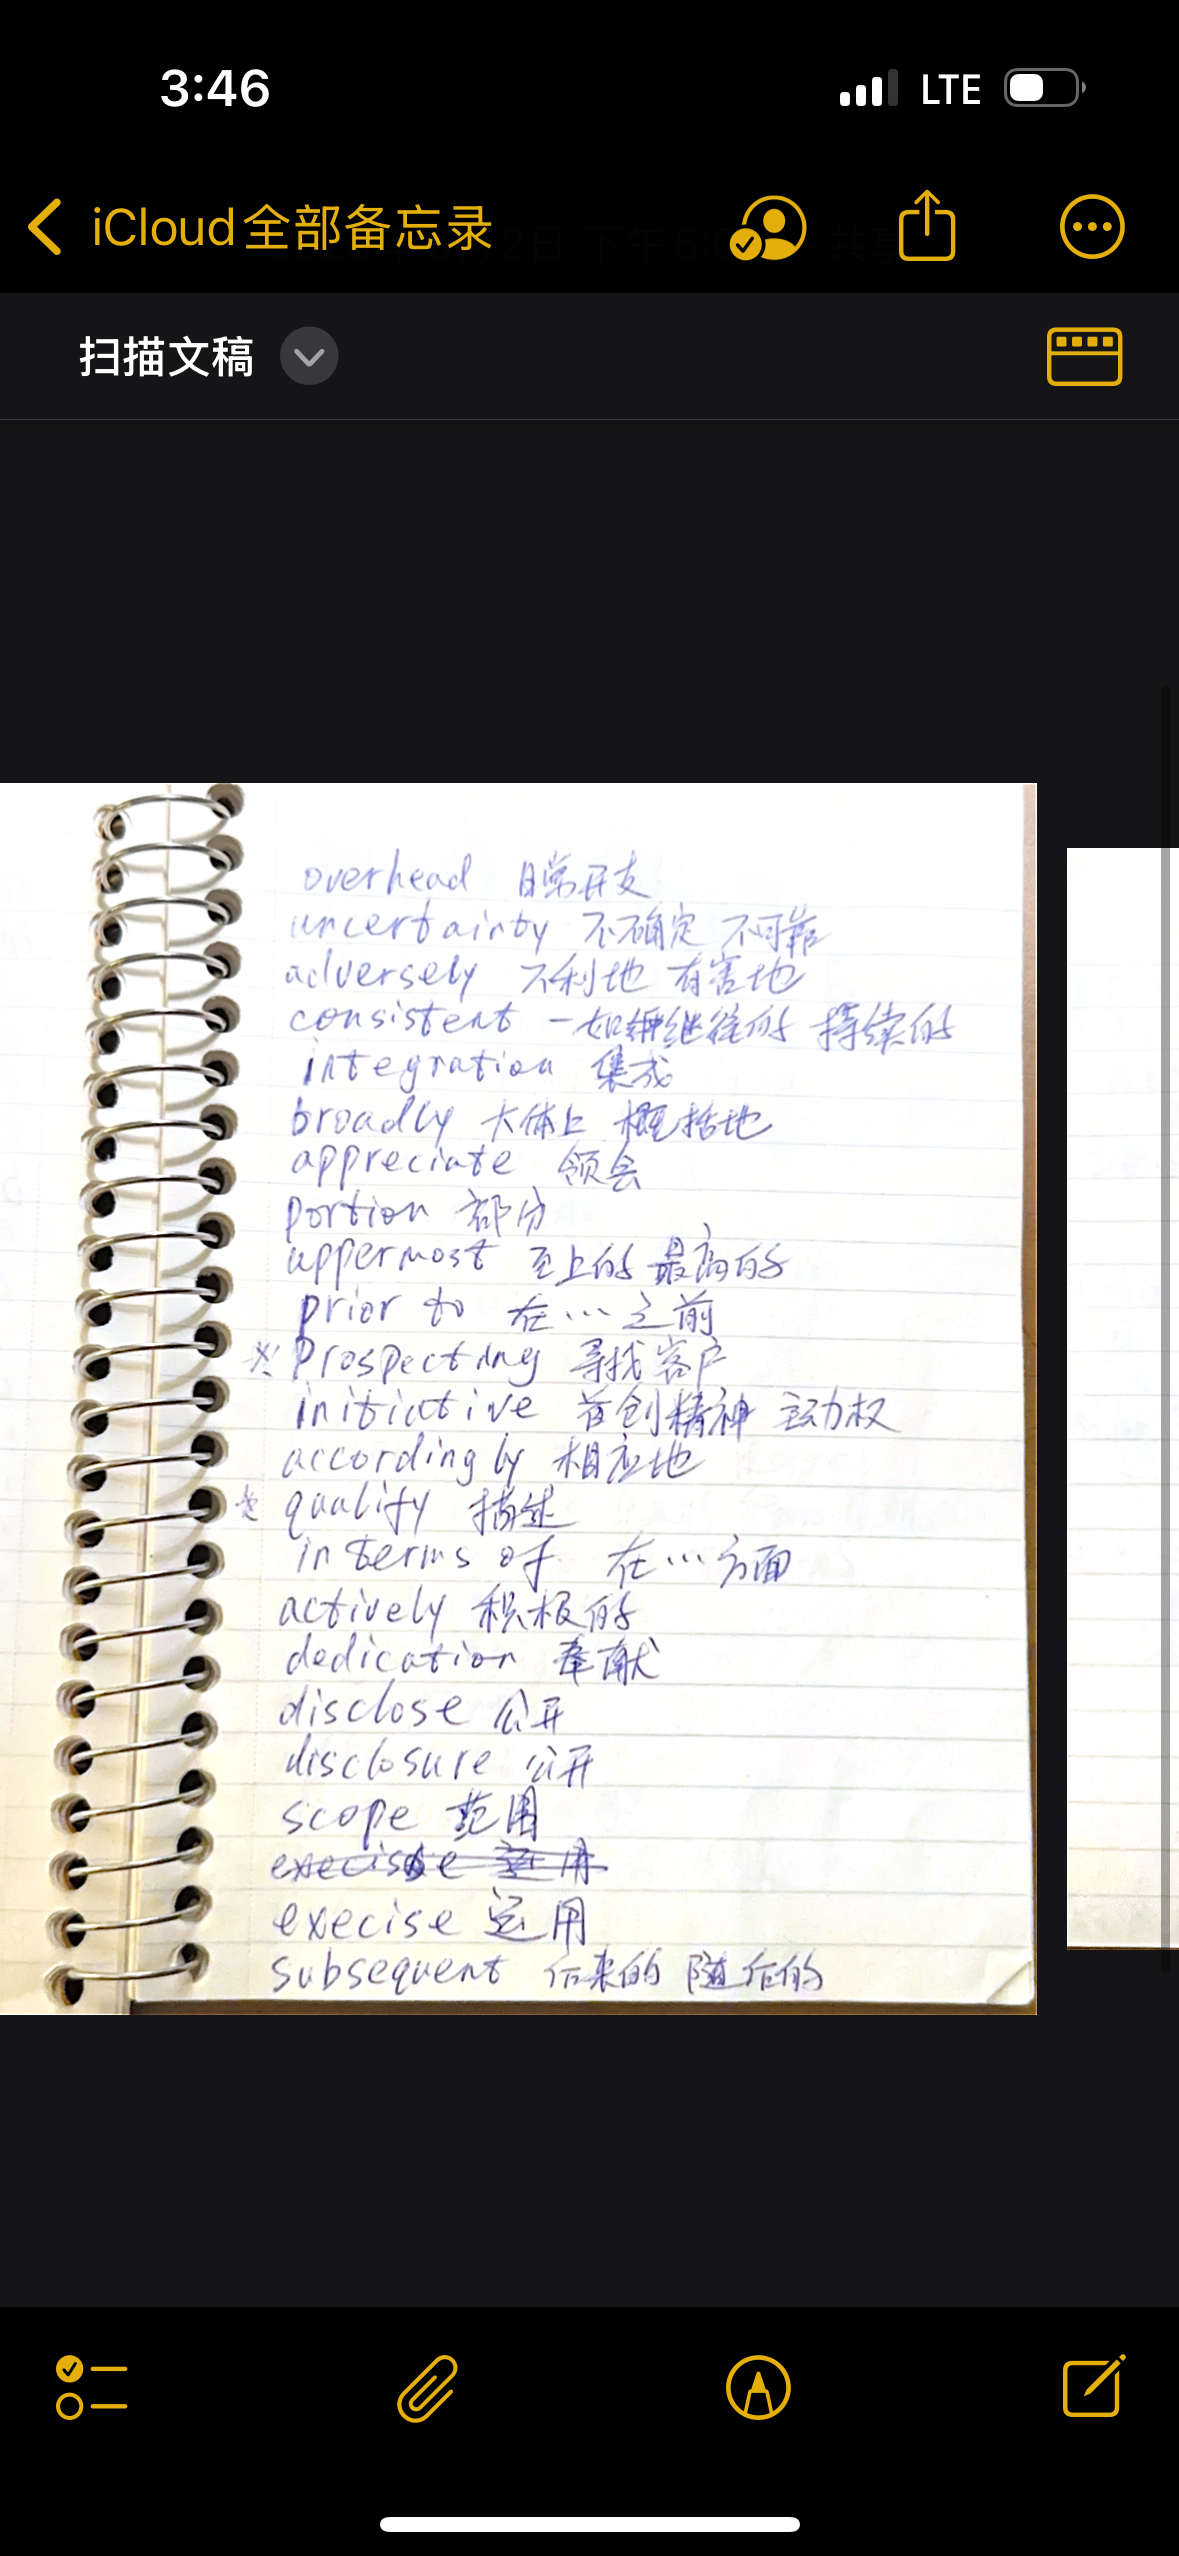 3:46 LTE
iCloud全部备忘录
扫描文稿
overhead 日常开支
uncertainty 不确定 不可靠
adversely 不利地 有害地
consistent 一如继往的 持续的
integration 集成
broadly 大体上 概括地
appreciate 领会
portion 部分
uppermost 至上的 最高的
prior to 在…之前
※ Prospecting 寻找客户
initiative 首创精神 主动权
accordingly 相应地
qualify 描述
in terms of 在…方面
actively 积极的
dedication 奉献
disclose 公开
disclosure 公开
scope 范围
execise 运用
execise 运用
subsequent 后来的 随后的